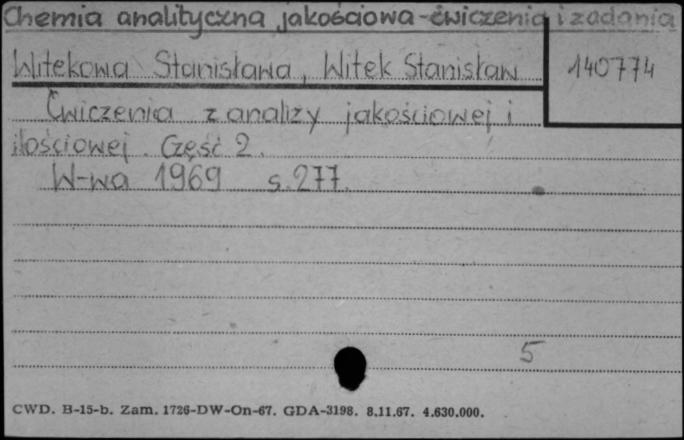 Chemia analityczna jakościowa - ćwiczenia i zadania
Witekowa Stanisława, Witek Stanisław
140774
Ćwiczenia z analizy jakościowej i
ilościowej. Część 2.
W-wa 1969 s. 277.
5
CWD. B-15-b. Zam. 1726-DW-On-67. GDA-3198. 8.11.67. 4.630.000.